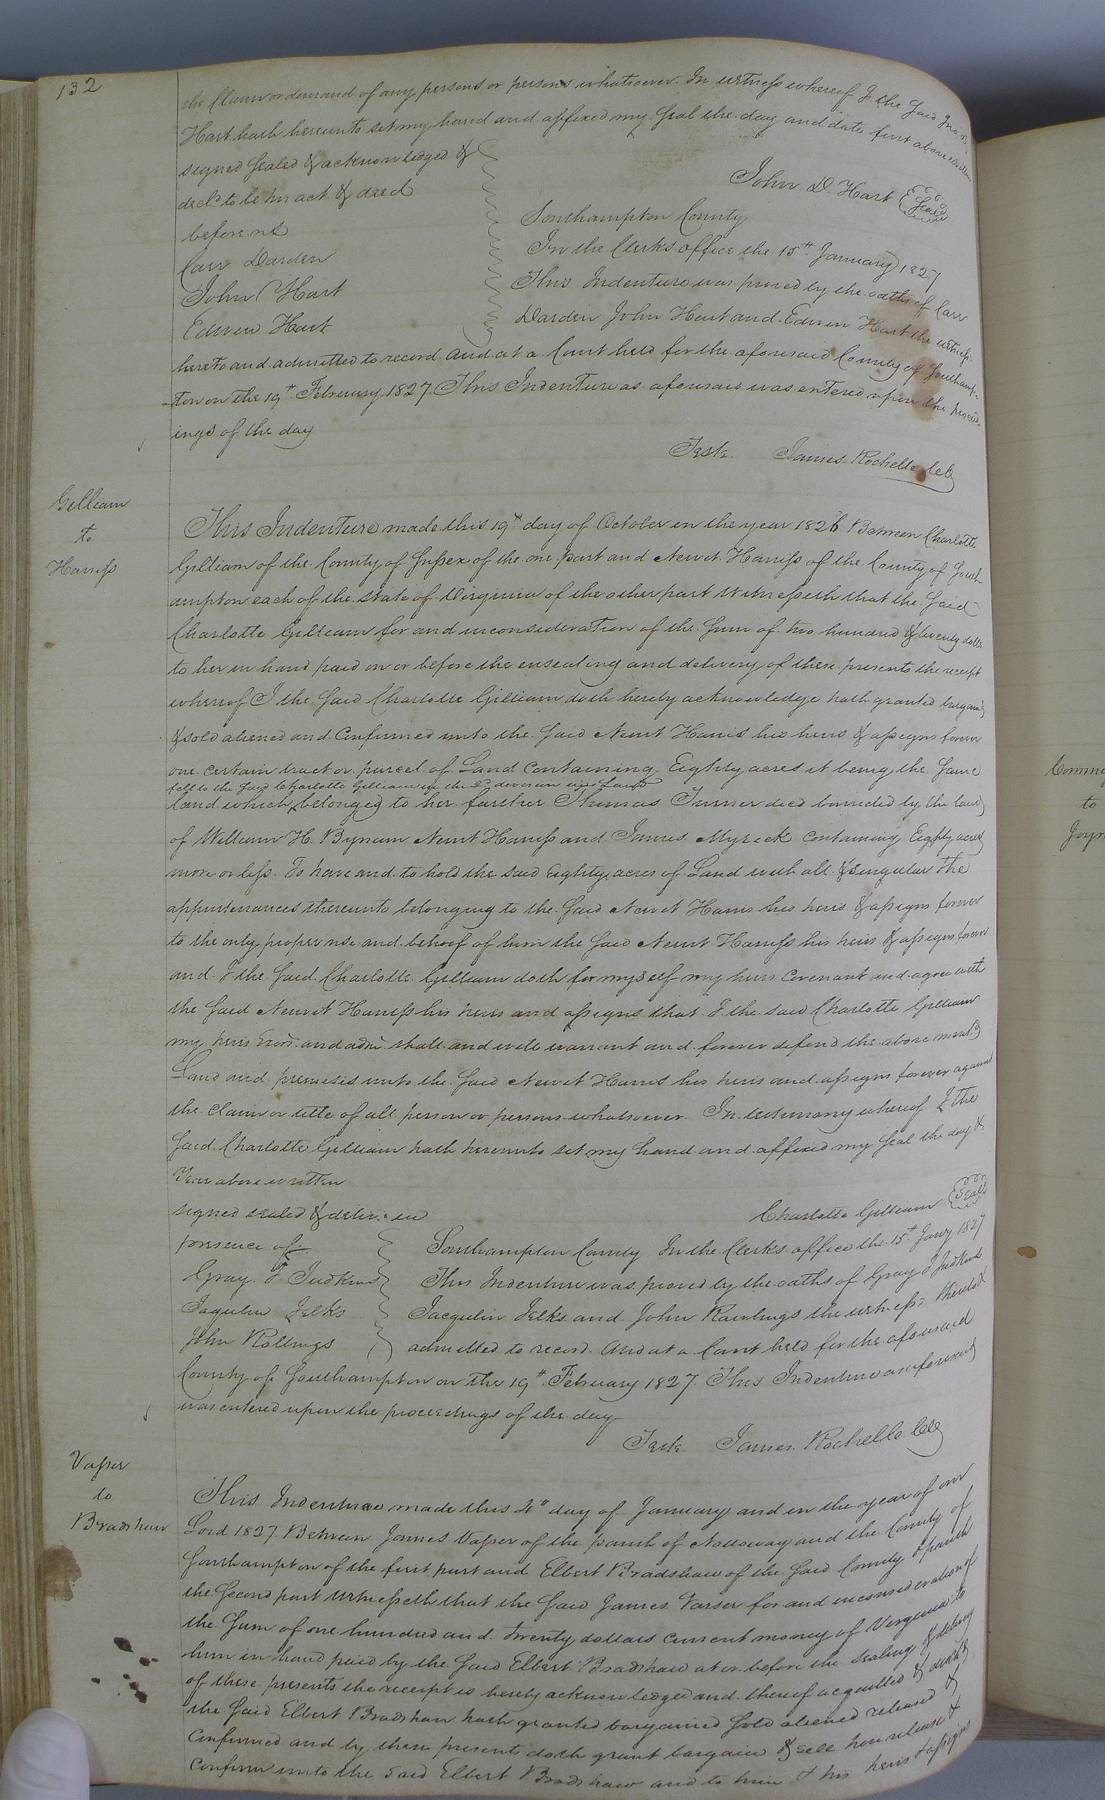 132
the Claim or demand of any persons or persons whatsoever. In witness whereof I the Said Jno. D.
Hart hath hereunto set my hand and affixed my Seal the day and date first above written
signed Sealed & acknowledged &
decld. to be his act & deed
before us
Carr Darden
John Hart
Edwin Hart
John D. Hart {Seal}
Southampton County
In the Clerks office the 15th January 1827
This Indenture was proved by the oaths of Carr
Darden John Hart and Edwin Hart the witness
hereto and admitted to record and at a Court held for the aforesaid County of Southamp-
-ton on the 19th February 1827. This Indenture as aforesaid was entered upon the proceed-
ings of the day
Teste. James Rochelle CC
Gilliam
to
Harriss
This Indenture made this 19th day of October in the year 1826 Between Charlotte
Gilliam of the County of Sussex of the one part and Newit Harriss of the County of South-
ampton each of the state of Virginia of the other part Witnesseth that the Said
Charlotte Gilliam for and in consideration of the Sum of two hundred & twenty dolls
to her in hand paid on or before the ensealing and delivery of these presents the receipt
whereof I the Said Charlotte Gilliam doth hereby acknowledge hath granted bargaind
& sold aliened and Confirmed unto the Said Newit Harris his heirs & assigns forever
one certain tract or parcel of Land Containing Eighty acres it being the Same
fell to the Said Charlotte Gilliam in the division
land which belonged to her farther Thomas Turner decd bounded by the land
of William H. Bynum Newit Harriss and James Myrick Containing Eighty acres
more or less. To have and to hold the said Eighty acres of Land with all & singular the
appurtenances thereunto belonging to the Said Newit Harris his heirs & assigns forever
to the only proper use and behoof of him the Said Newit Harriss his heirs & assigns forever
and I the Said Charlotte Gilliam doth for myself my heirs Covenant and agree with
the Said Newit Harriss his heirs and assigns that I the said Charlotte Gilliam
my heirs Exors. and adm. shall and will warrant and forever defend the above mentd.
Land and premises unto the Said Newit Harris his heirs and assigns forever against
the Claim or title of all person or persons whatsoever In testimony whereof I the
Said Charlotte Gilliam hath hereunto set my hand and affixed my Seal the day &
Year above written
signed sealed & deliv. in
presence of
Gray Judkins
Jaqulin Jelks
John Rollings
Charlotte Gilliam {Seal}
Southampton County In the Clerks office the 15th Jany 1827
This Indenture was proved by the oaths of Gray Judkins
Jacqulin Jelks and John Rawlings the witness thereto &
admitted to record. And at a Court held for the aforesaid
County of Southampton on the 19th February 1827. This Indenture as aforesaid
was entered upon the proceedings of the day
Teste. James Rochelle CC
Vasser
to
Bradshaw
This Indenture made this 4th day of January and in the year of our
Lord 1827. Between James Vasser of the parish of Nottoway and the County of
Southampton of the first part and Elbert Bradshaw of the Said County & parish
the Second part Witnesseth that the Said James Vasser for and in consideration of
the Sum of one hundred and twenty dollars current money of Virginia to
him in hand paid by the Said Elbert Bradshaw at or before the Sealing & delivery
of these presents the receipt is hereby acknowledged and thereof acquitted &
the Said Elbert Bradshaw hath granted bargained Sold aliened released &
Confirmed and by these presents doth grant bargain & sell release &
Confirm unto the said Elbert Bradshaw and to him & his heirs & assigns
Comm
to
Joyn